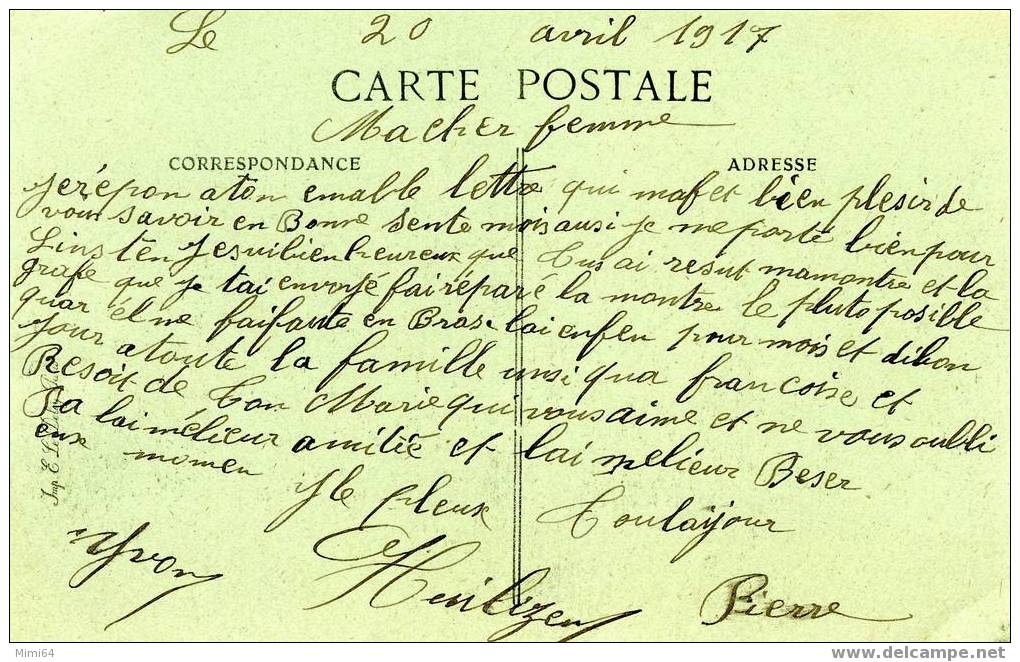 Le 20 avril 1917
CARTE POSTALE
Macher femme
CORRESPONDANCE ADRESSE
Jerépon aton emable lettre qui mafet bien plesir de
vous savoir en Bonne sente mois ausi je me porte bien pour
Linstēn Jesuibien heureux que Tus ai resut mamontre et la
grafe que je tai envoyé fai réparé la montre le plutoposible
quar él ne faifaute en Brase lai enfen pour mois et di bon
Jour atoute la famille unsi qua francoise et
Resoit de Ton Marie qui vous aime et ne vous oubli
Pa lai mélieur amitié et lai melieur Beser
eux
momen Yle pleux Toulaijour
Yvon Pierre
Imp. E. Le
Mimi64
www.delcampe.net